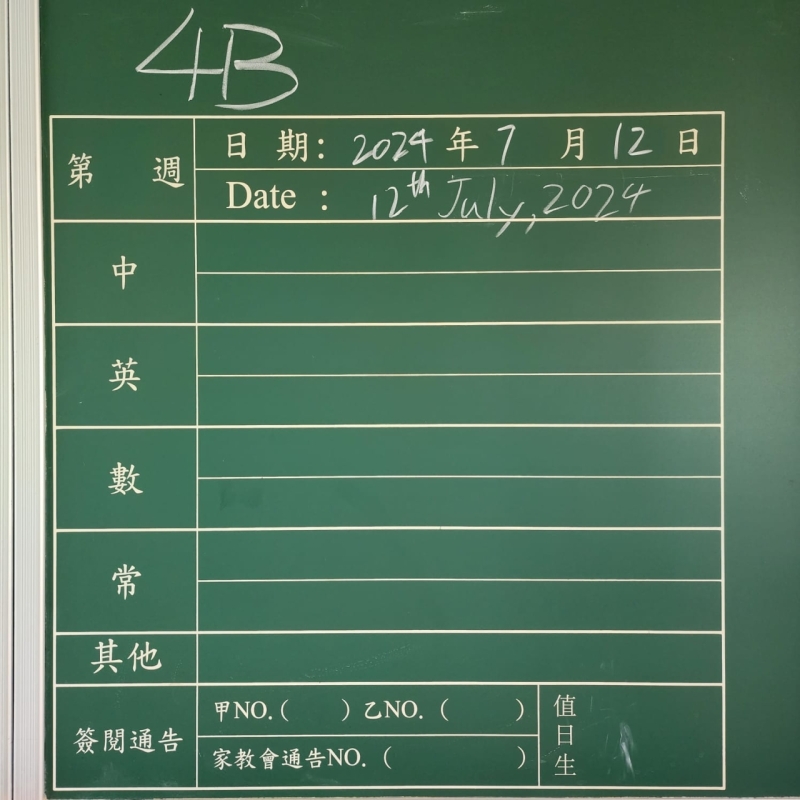 4B
第 週
日 期: 2024 年 7 月 12 日
Date : 12th July, 2024
中
英
數
常
其他
簽閱通告
甲NO.( ) 乙NO. ( )
家教會通告NO. ( )
值日生